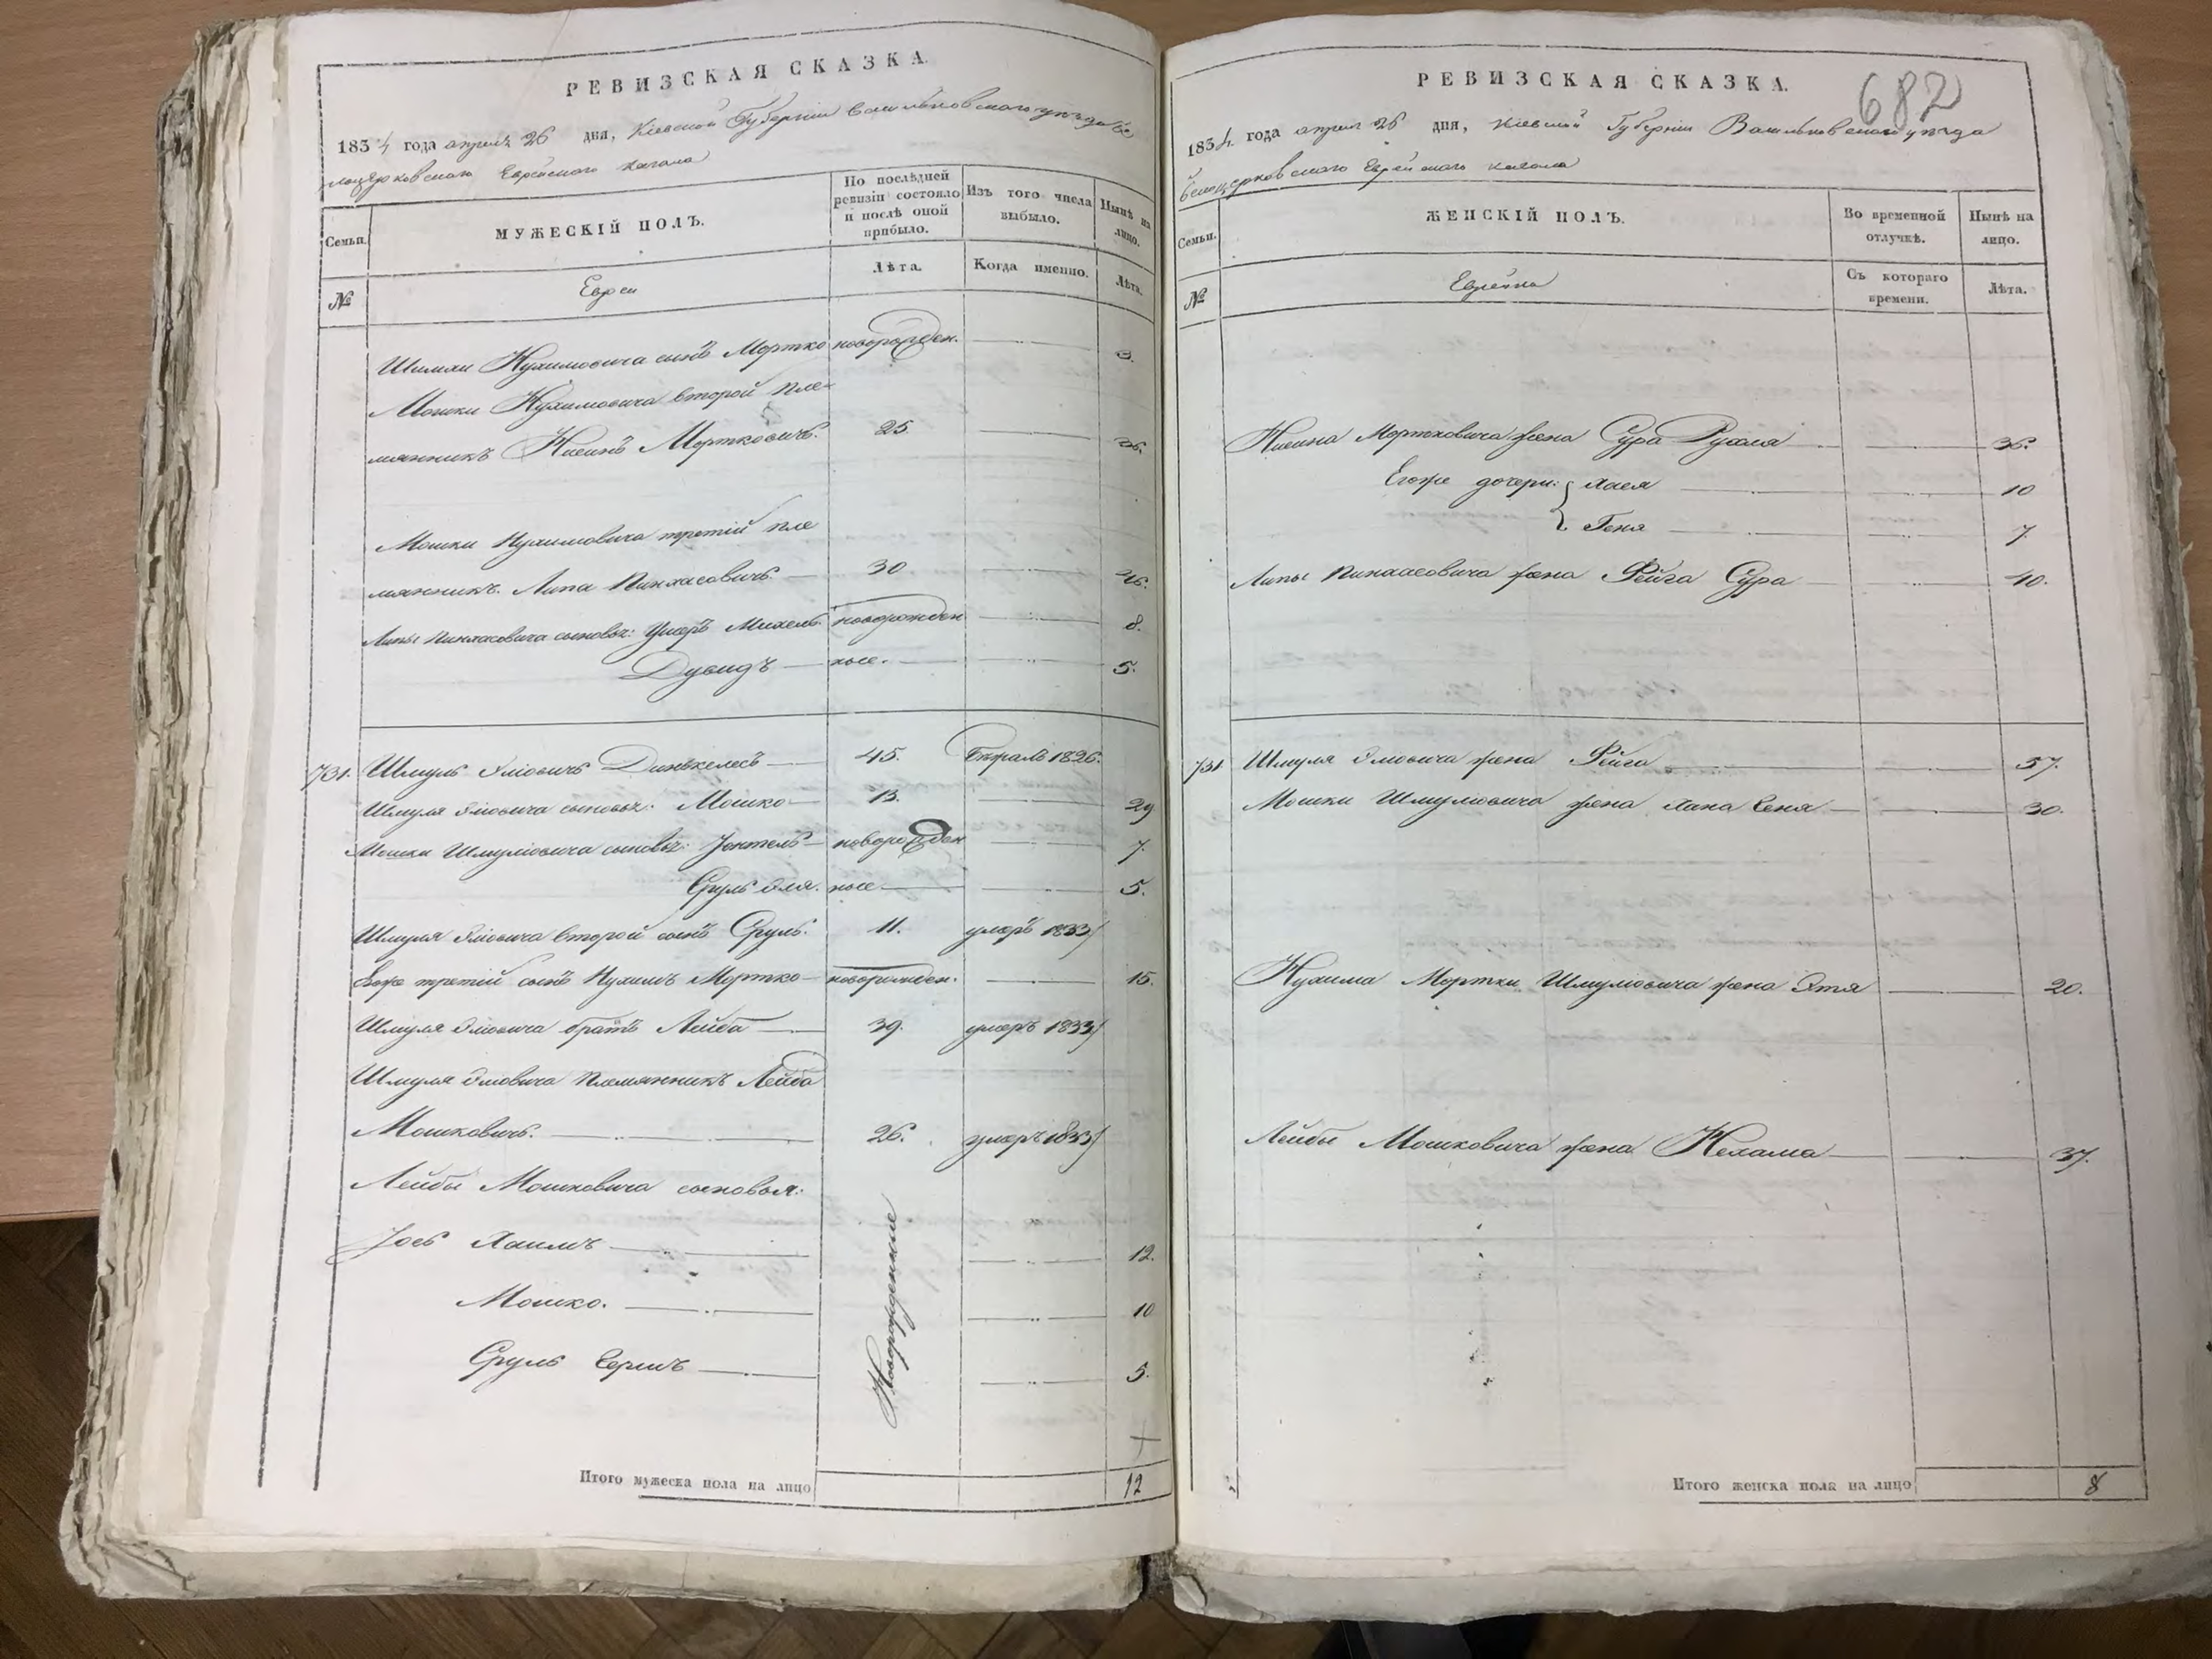 РЕВИЗСКАЯ СКАЗКА.
1834 года апреля 26 дня, Кіевской Губерніи Васильковскаго уѣзда Бе
лоцерковскаго Еврейскаго кагала
Семьи.
МУЖЕСКІЙ ПОЛЪ.
По послѣдней ревизіи состояло и послѣ оной прибыло.
Изъ того числа выбыло.
Нынѣ на лицо.
№
Евреи
Лѣта.
Когда именно.
Лѣта.
Шимхи Нухимовича сынъ Мортко новорожден. 3.
Мошки Нухимовича второй пле-
мянникъ Нисинъ Мортковичъ. 25. 36.
Мошки Нухимовича третій пле
мянникъ Липа Пинхасовичъ. 30 46.
Липы Пинхасовича сыновья: Ушеръ Михель. новорожден 8.
Дувидъ ные. 5.
731. Шмуль Эліовичъ Динькелесъ 45. 1826.
Шмуля Эліовича сыновья: Мошко 13. 29
Мошки Шмуліовича сыновья: Јонтель новорожден 7.
Сруль Эля. ные 5.
Шмуля Эліовича второй сынъ Сруль. 11. умеръ 1833
Егоже третій сынъ Нухимъ Мортко новорожден. 15.
Шмуля Эліовича братъ Лейба 39. умеръ 1833
Шмуля Эліовича племянникъ Лейба
Мошковичъ. 26. умеръ 1833
Лейбы Мошковича сыновья:
Јось Хаимъ 12.
Мошко. 10
Сруль Гершъ 5.
Новорожденные
Итого мужеска пола на лицо 12
РЕВИЗСКАЯ СКАЗКА.
682
1834 года апреля 26 дня, Кіевской Губерніи Васильковскаго уѣзда
Белоцерковскаго Еврейскаго кагала
Семьи.
ЖЕНСКІЙ ПОЛЪ.
Во временной отлучкѣ.
Нынѣ на лицо.
№
Еврейки
Съ котораго времени.
Лѣта.
Нисина Мортковича жена Сура Рухля 36.
Егоже дочери: Хася 10
Геня 7
Липы Пинхасовича жена Фейга Сура 40.
731 Шмуля Эліовича жена Фейга 57.
Мошки Шмуліовича жена Хана Сеня 30.
Нухима Мортки Шмуліовича жена Этя 20.
Лейбы Мошковича жена Нехама 37.
Итого женска пола на лицо 8